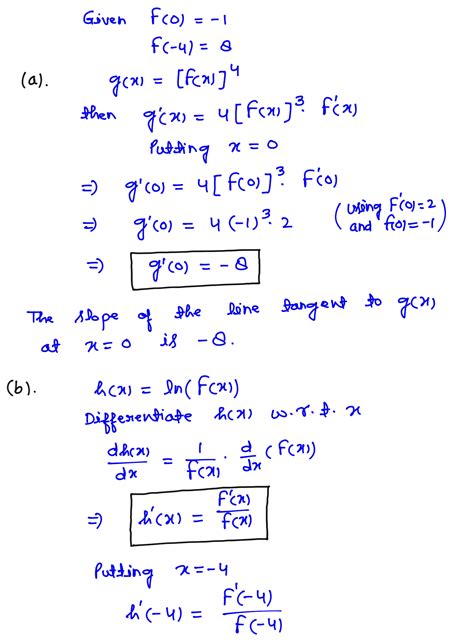 Given f(0) = -1
f(-4) = 8
(a). g(x) = [f(x)]^4
then g'(x) = 4[f(x)]^3. f'(x)
Putting x = 0
=> g'(0) = 4[f(0)]^3. f'(0)
=> g'(0) = 4(-1)^3. 2 (using f'(0)=2 and f(0)=-1)
=> g'(0) = -8
The slope of the line tangent to g(x)
at x = 0 is -8.
(b). h(x) = ln(f(x))
Differentiate h(x) w.r.t. x
dh(x)/dx = 1/f(x) . d/dx (f(x))
=> h'(x) = f'(x)/f(x)
Putting x = -4
h'(-4) = f'(-4)/f(-4)